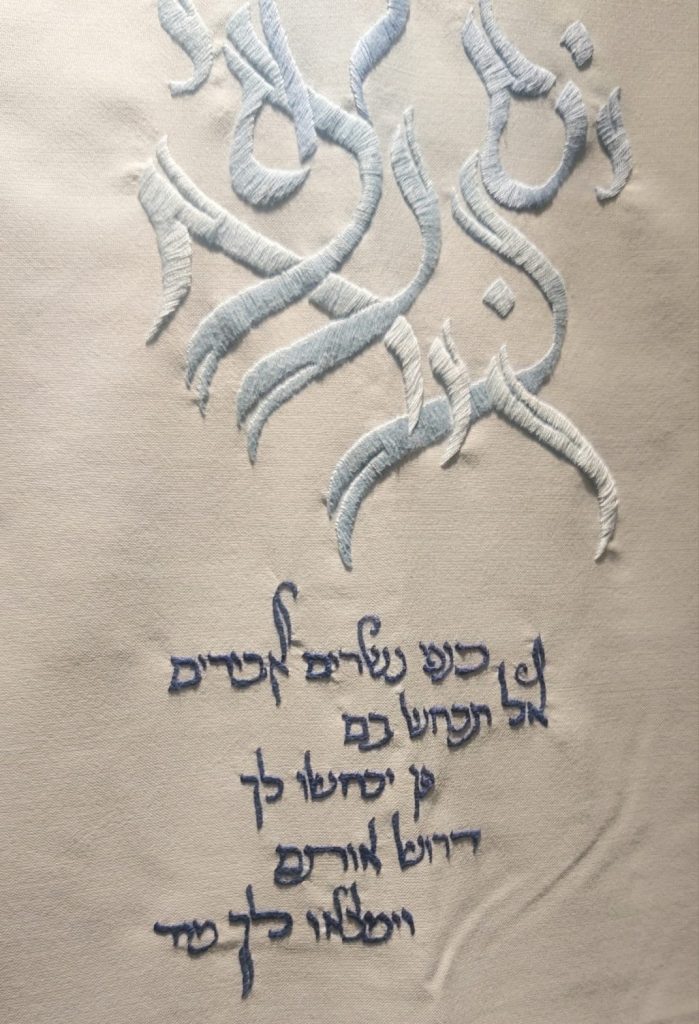 כנפי נשרים אבירים
אל תכחש בם
פן יכחשו לך
דרוש אותם
וימצאו לך מיד